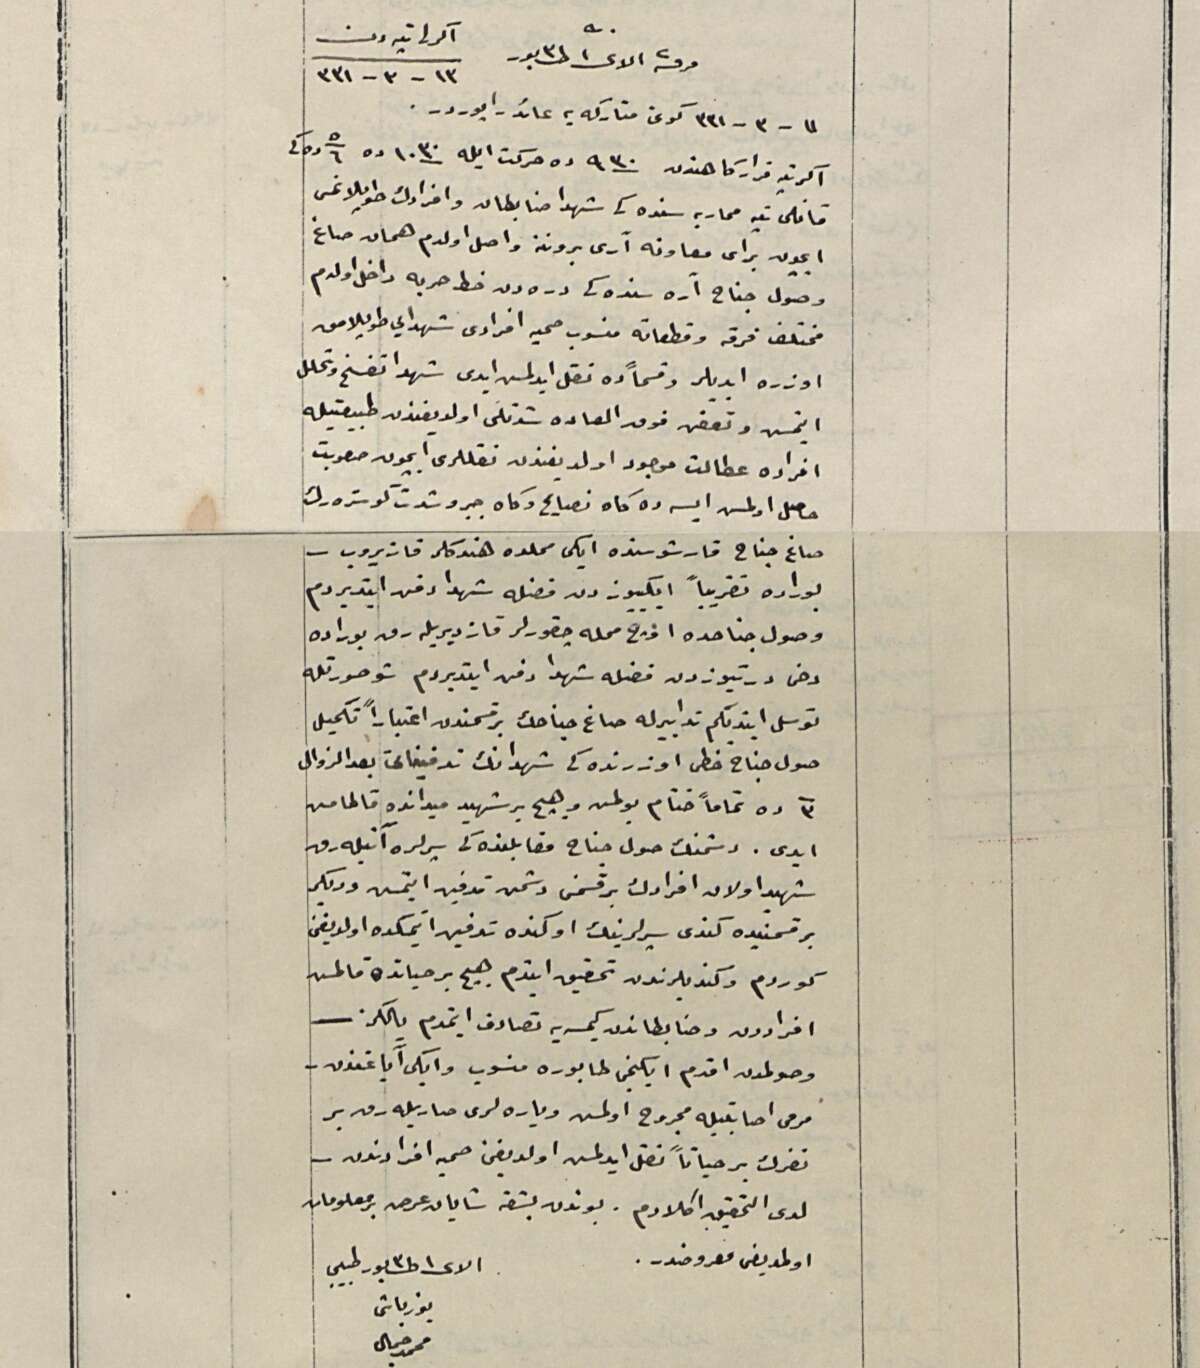 ٩٠
آكرلی تپه دن
فرقه ٢ آلای ١ طابور ٣
١٣ - ٣ - ٣٣١
١١ - ٣ - ٣٣١ كونی متاركه یه عائد راپوردر .
آكرتپه قرارگاهندن ٩،٣٠ ده حركت ایله ١٠،٣٠ ده ٥/٦ ده كی
قانلی تپه محاربه سنده كی شهدا ضابطان و افرادك طوپلانمسی
ایچون برای معاونه آری بروننه واصل اولدم همان صاغ
وصول جناح آره سنده كی دره دن خط حربه داخل اولدم
مختلف فرقه و قطعاته منسوب صحیه افرادی شهدایی طوپلامق
اوزره ایدیلر وقسماً ده نقل ایدلمش ایدی شهدا تفسخ وتحلل
ایتمش و تعفن فوق العاده شدتلی اولدیغندن طبیعتیله
افراده عطالت موجود اولدیغندن نقللری ایچون صعوبت
حاصل اولمش ایسه ده كاه نصایح وكاه جبر وشدت كوستره رك
صاغ جناح قارشوسنده ایكی محلده هندكلر قازیروب
بوراده تقریباً ایكیوزدن فضله شهدا دفن ایتدیردم
وصول جناحده اوچ محله چقورلر قازدیریله رق بوراده
دخی درتیوزدن فضله شهدا دفن ایتدیردم شو صورتله
توسل ایتدیكم تدابیرله صاغ جناحك برقسمندن اعتباراً تكمیل
صول جناح خطی اوزرنده كی شهدانك تدفیناتی بعد الزوال
٣ ده تماماً ختام بولمش وهیچ بر شهید میدانده قالمامش
ایدی . دشمنك صول جناح مقابلنده كی سپرلره آتیله رق
شهید اولان افرادك برقسمنی دشمن تدفین ایتمش ودیكر
برقسمنیده كندی سپرلرینك اوكنده تدفین ایتمكده اولدیغنی
كوردم وكندیلرندن تحقیق ایتدم هیچ بر حیاتده قالمش
افراددن وضابطاندن كیمسه یه تصادف ایتمدم یالكز
وصولمدن اقدم ایكنجی طابوره منسوب وایكی آیاغندن
مرمی اصابتیله مجروح اولمش ویاره لری صاریله رق بر
نفرك بر حیاتاً نقل ایدلمش اولدیغنی صحیه افرادندن
لدی التحقیق اكلادم . بوندن بشقه شایان عرض بر معلومات
اولمدیغی معروضدر .
آلای ١ طابور ٣ طبیبی
یوزباشی
محمد جمالی